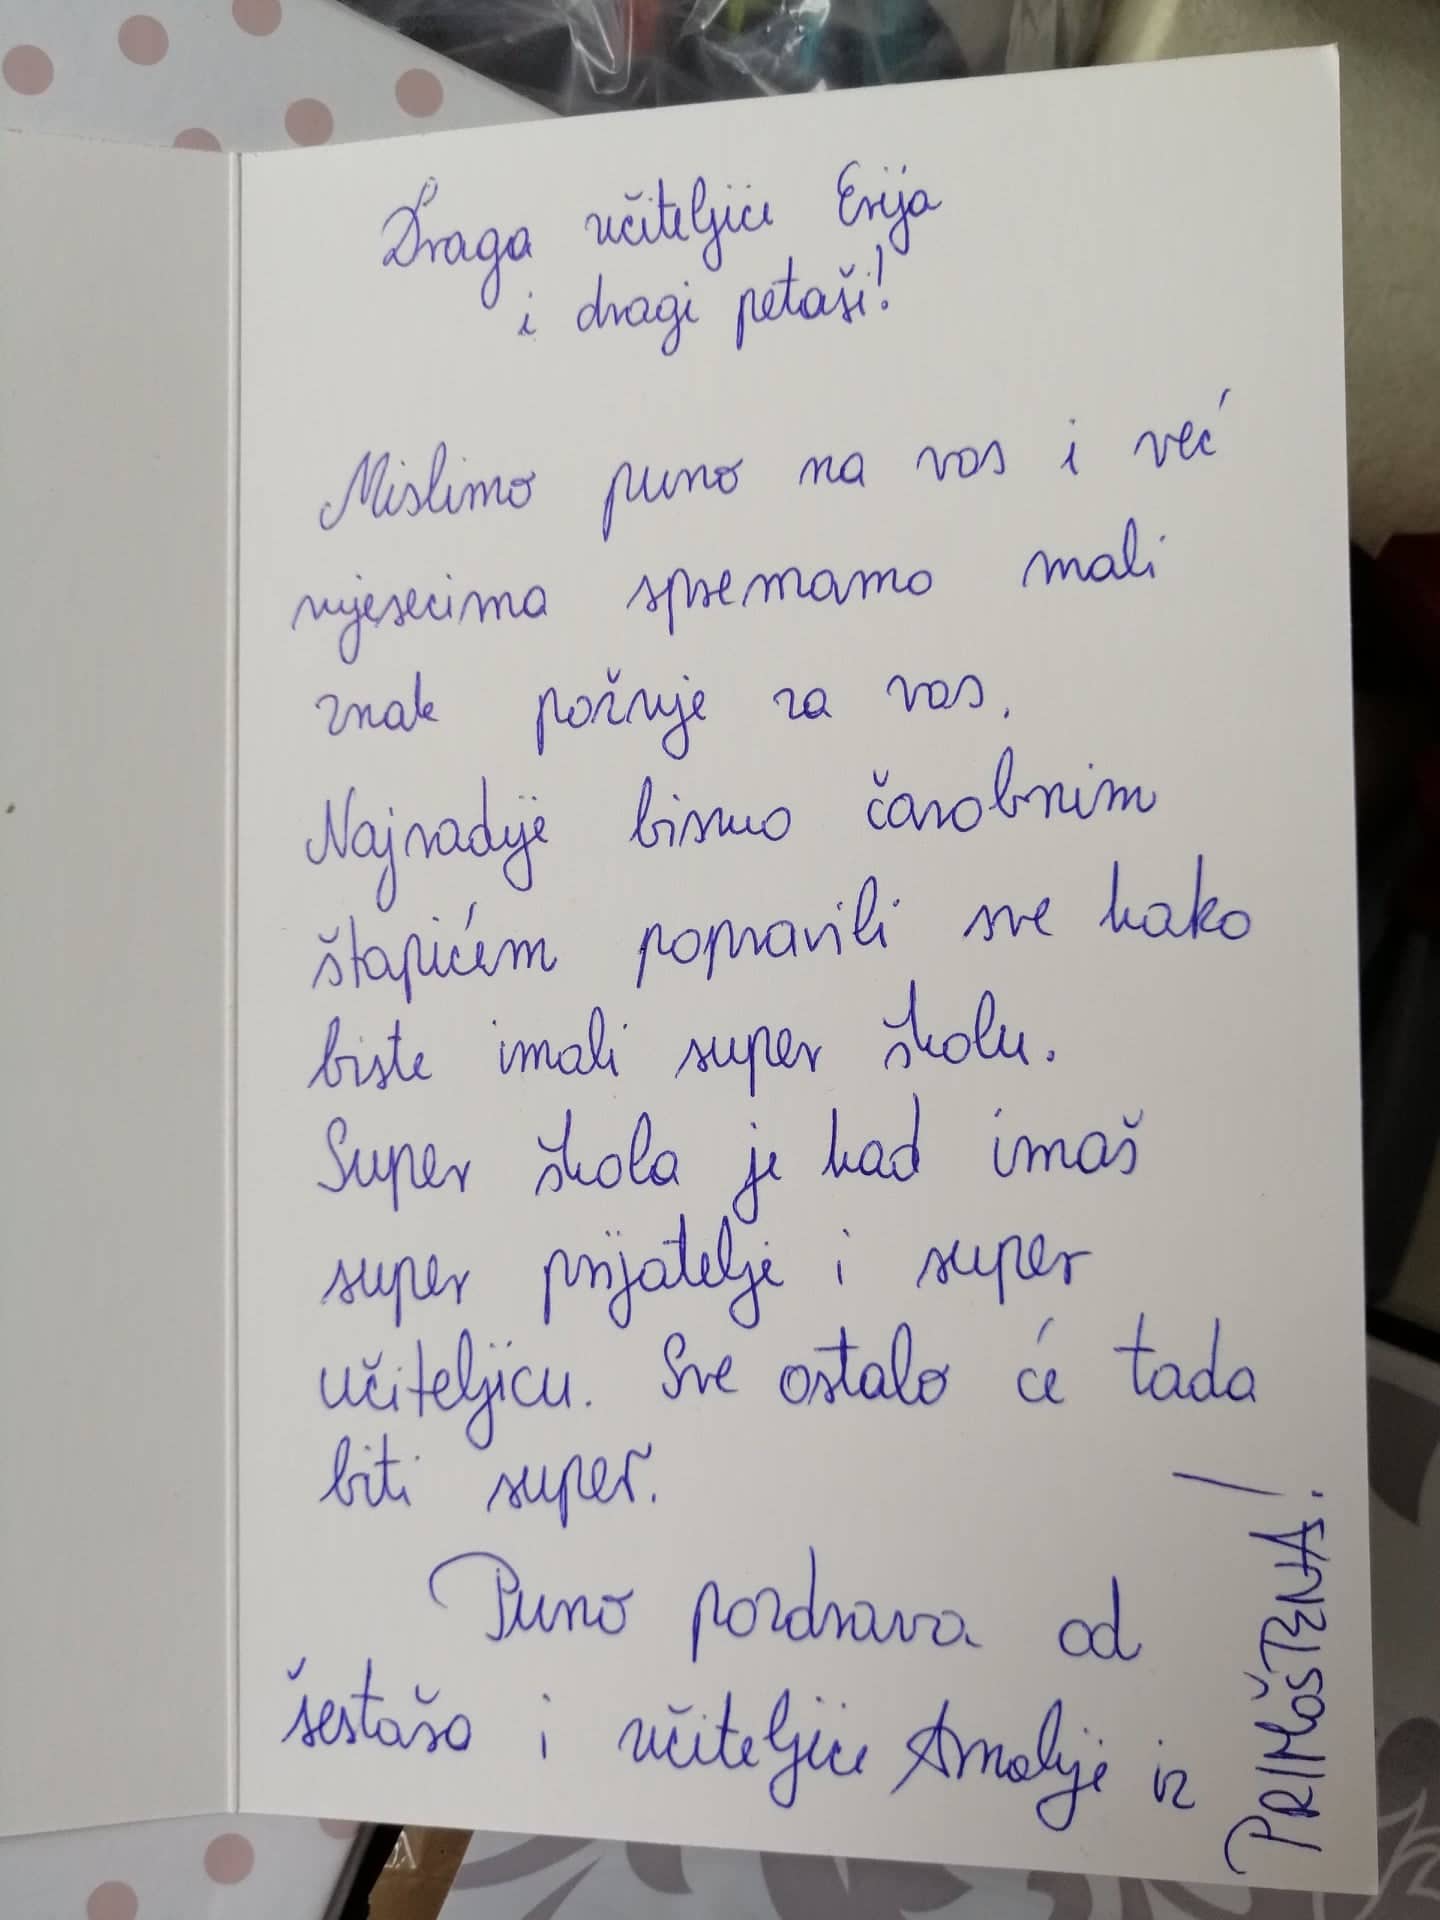 Draga učiteljice Erija
i dragi petaši!
Mislimo puno na vas i već
mjesecima spremamo mali
znak pažnje za vas.
Najradije bismo čarobnim
štapićem popravili sve kako
biste imali super školu.
Super škola je kad imaš
super prijatelje i super
učiteljicu. Sve ostalo će tada
biti super.
Puno pozdrava od
šestaša i učiteljice Amalije iz
PRIMOŠTENA!